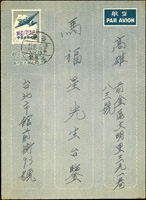 航空
PAR AVION
高雄
前金區大明東三九一巷
八三號
馬福星先生台鑒
台北平館前街93號